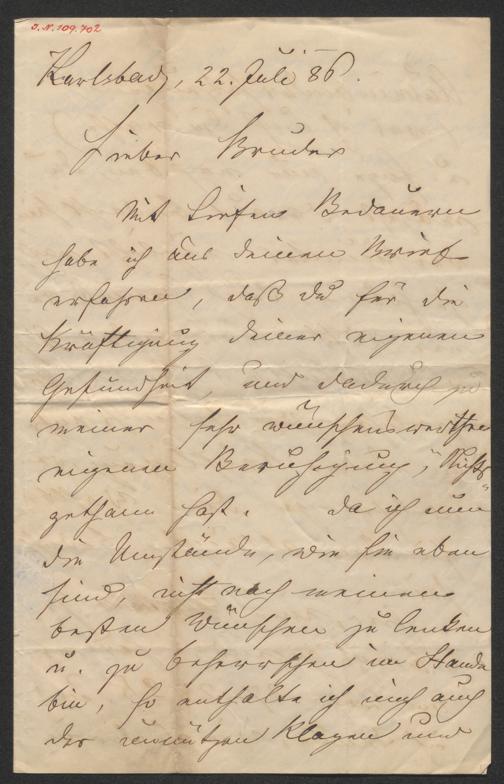 J.N. 109.702
Karlsbad, 22. Juli 86.
Lieber Bruder
Mit tiefem Bedauern
habe ich aus deinem Brief
erfahren, daß du für die
Kräftigung deiner eigenen
Gesundheit, und dadurch zu
meiner sehr wünschenswerthen
eigenen Beruhigung, "Nichts"
gethan hast. Da ich nun
die Umstände, wie sie eben
sind, nicht nach meinen
besten Wünschen zu lenken
u. zu beherrschen im Stande
bin, so enthalte ich mich auch
der unnützen Klagen und